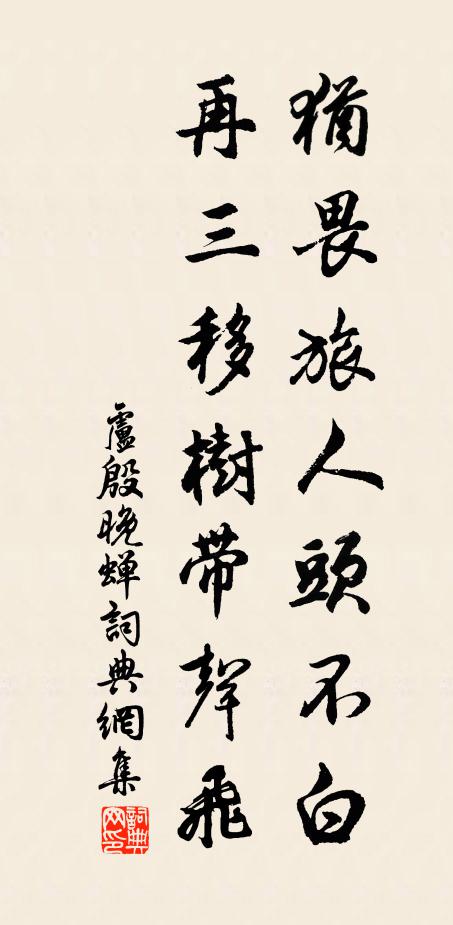 猶畏旅人頭不白
再三移樹帶聲飛
盧殷晚蟬詞典網集
詞典网印